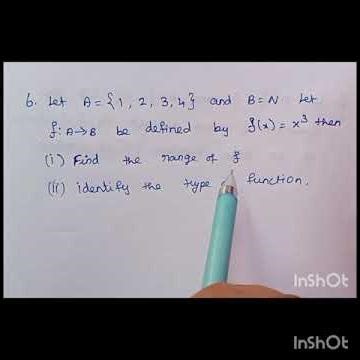 6. Let A = {1, 2, 3, 4} and B = N Let
f: A→B be defined by f(x) = x³ then
(i) Find the range of f
(ii) identify the type function.
InShOt
InShOt